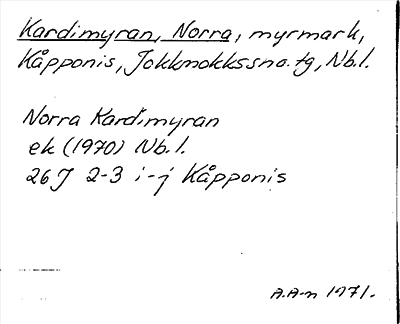 Kardimyran, Norra, myrmark,
Kåpponis, Jokkmokkssna. tg, Nb.l.
Norra Kardimyran
ek (1970) Nb.l.
26 J 2-3 i-j Kåpponis
A.A-n 1971.